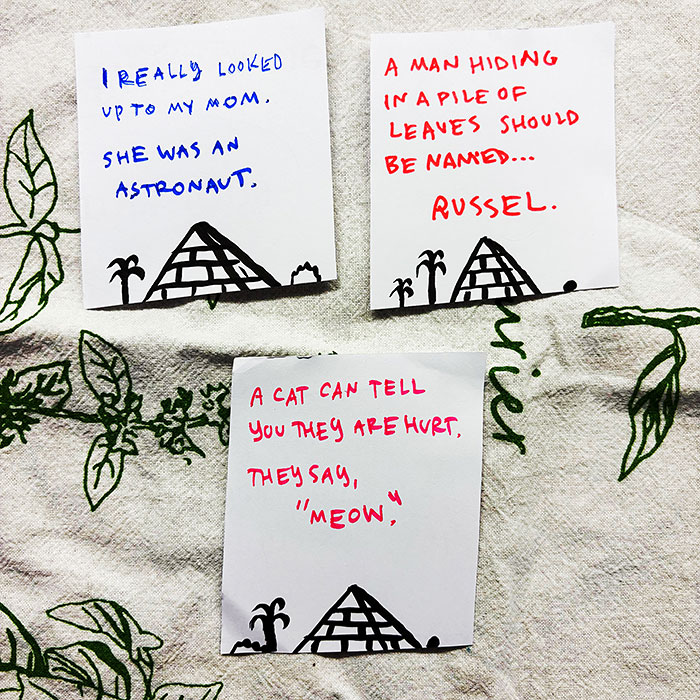 I REALLY LOOKED
UP TO MY MOM.
SHE WAS AN
ASTRONAUT.
A MAN HIDING
IN A PILE OF
LEAVES SHOULD
BE NAMED...
RUSSEL.
A CAT CAN TELL
YOU THEY ARE HURT.
THEY SAY,
"MEOW."